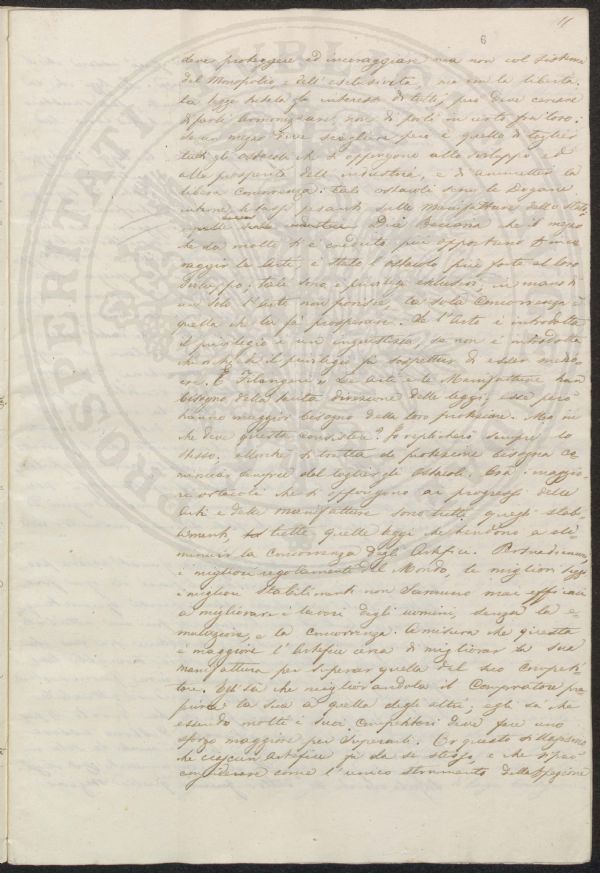 11
6
deve proteggere ed incoraggiare ma non col sistema
del Monopolio, e dell'esclusività, ma con la libertà.
La legge deve la interesse di tutti, però deve cercare
di porli armonizzare, non di porli in urto fra loro.
Se un mezzo deve scegliere però è quello di togliere
tutti gli ostacoli che si oppongono allo sviluppo ed
alla prosperità dell'industria, e di ammetter la
libera Concorrenza. Tali ostacoli sono le Dogane
interne le tasse pesanti sulle Manifatture dello Stato
e sulle industrie Dice Beccaria che il mezzo
che da molti si è creduto più opportuno
raggir le Arti, è stato l'ostacolo più forte al loro
sviluppo; tale sono i privilegi esclusivi, in mano di
un solo l'arte non fiorisce, la sola Concorrenza è
quella che la fà prosperare. Se l'Arte è introdotta
il privilegio è un ingiustizia, se non è introdotta
il privilegio fà sospettar di esser medio
cre. E Filangieri: Le Arti e le Manifatture han
bisogno della direzione delle leggi, esse però
hanno maggior bisogno della loro protezione. Ma in
che deve questa consistere? Io replicherò sempre lo
stesso. Allorchè si tratta di protezione bisogna co
minciar sempre dal togliere gli Ostacoli. Ora i maggio
ri ostacoli che si oppongono ai progressi delle
Arti e delle manifatture sono tutti quegli stabi
limenti, tutte quelle leggi che tendono a di
minuire la Concorrenza degli Artefici.
i migliori regolamenti del Mondo, le migliori leggi
i migliori stabilimenti non saranno mai efficaci
a migliorare i lavori degli uomini, senza la e
mulazione, e la Concorrenza. A misura che questa
è maggiore l'Artefice cerca di migliorar la sua
manifattura per superar quella del suo Competi
tore. Egli sà che migliorandola il Compratore pre
ferirà la sua a quella degli altri; egli sà che
essendo molti i suoi Competitori deve fare uno
sforzo maggiore per superarli. Or questo
che ciascun artefice fà da se stesso, e che si può
considerare come l'unico strumento della